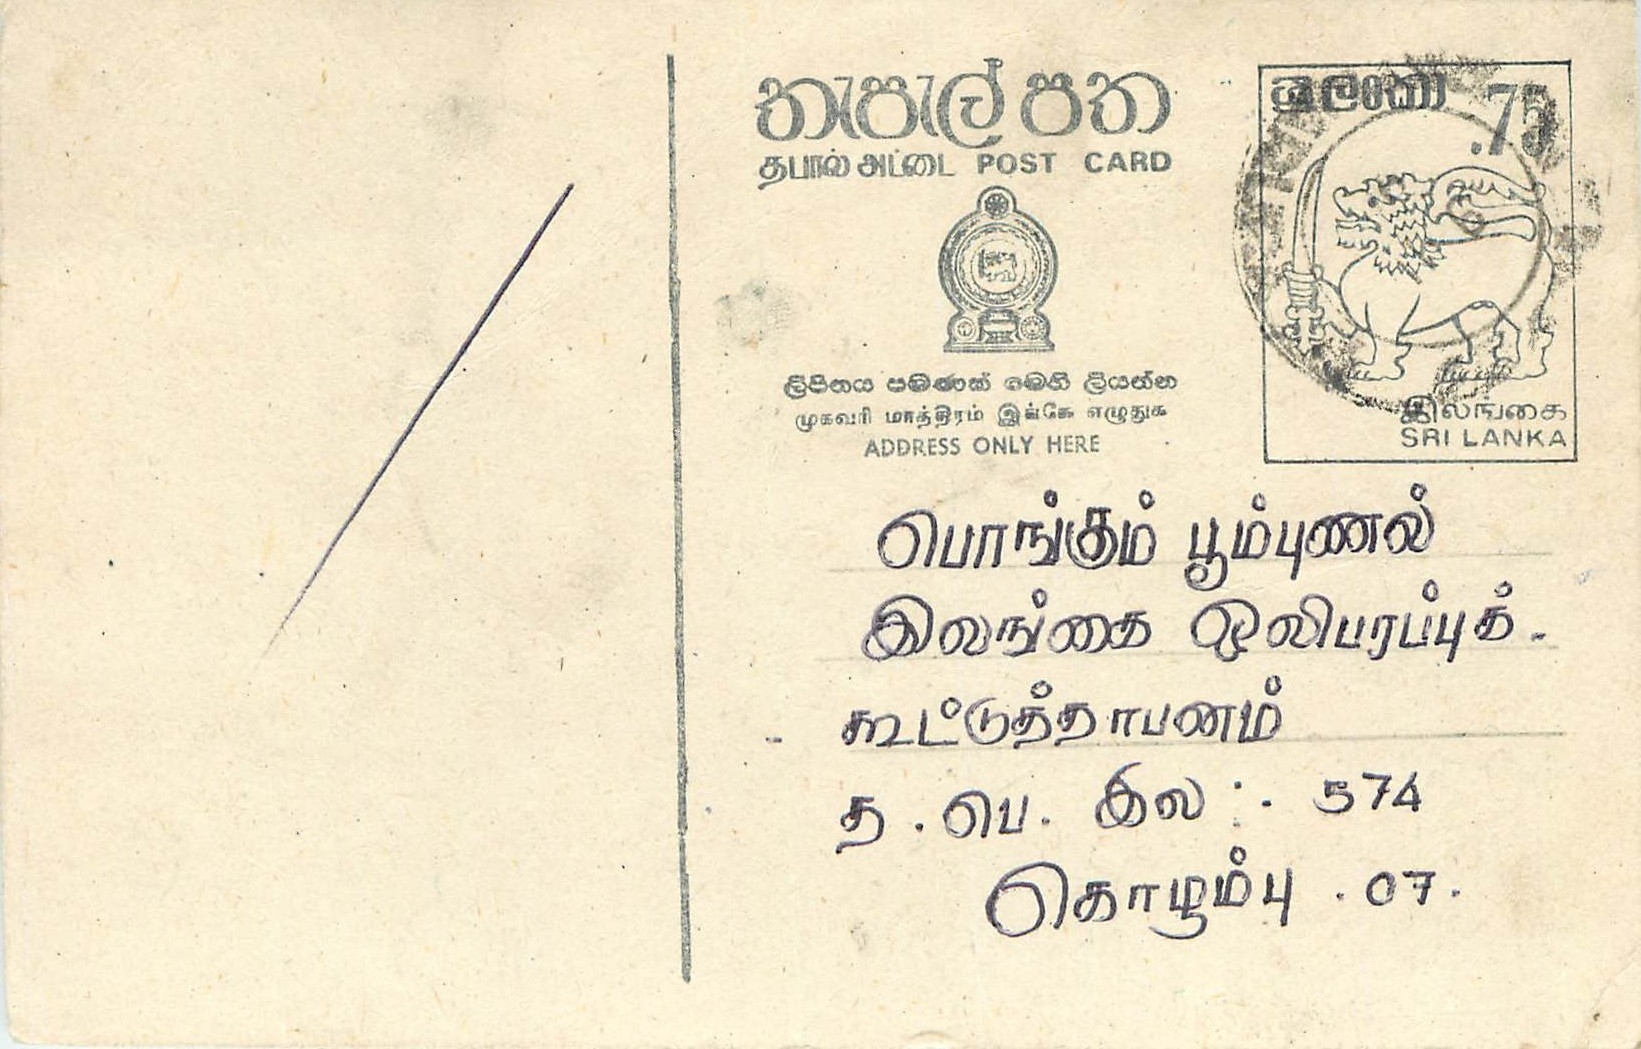 තැපැල් පත
தபால் அட்டை POST CARD
ශ්‍රී ලංකා .75
ලිපිනය පමණක් මෙහි ලියන්න
முகவரி மாத்திரம் இங்கே எழுதுக
ADDRESS ONLY HERE
இலங்கை
SRI LANKA
பொங்கும் பூம்புணல்
இலங்கை ஒலிபரப்புக் -
கூட்டுத்தாபனம்
த . பெ . இல : . 574
கொழும்பு . 07 .